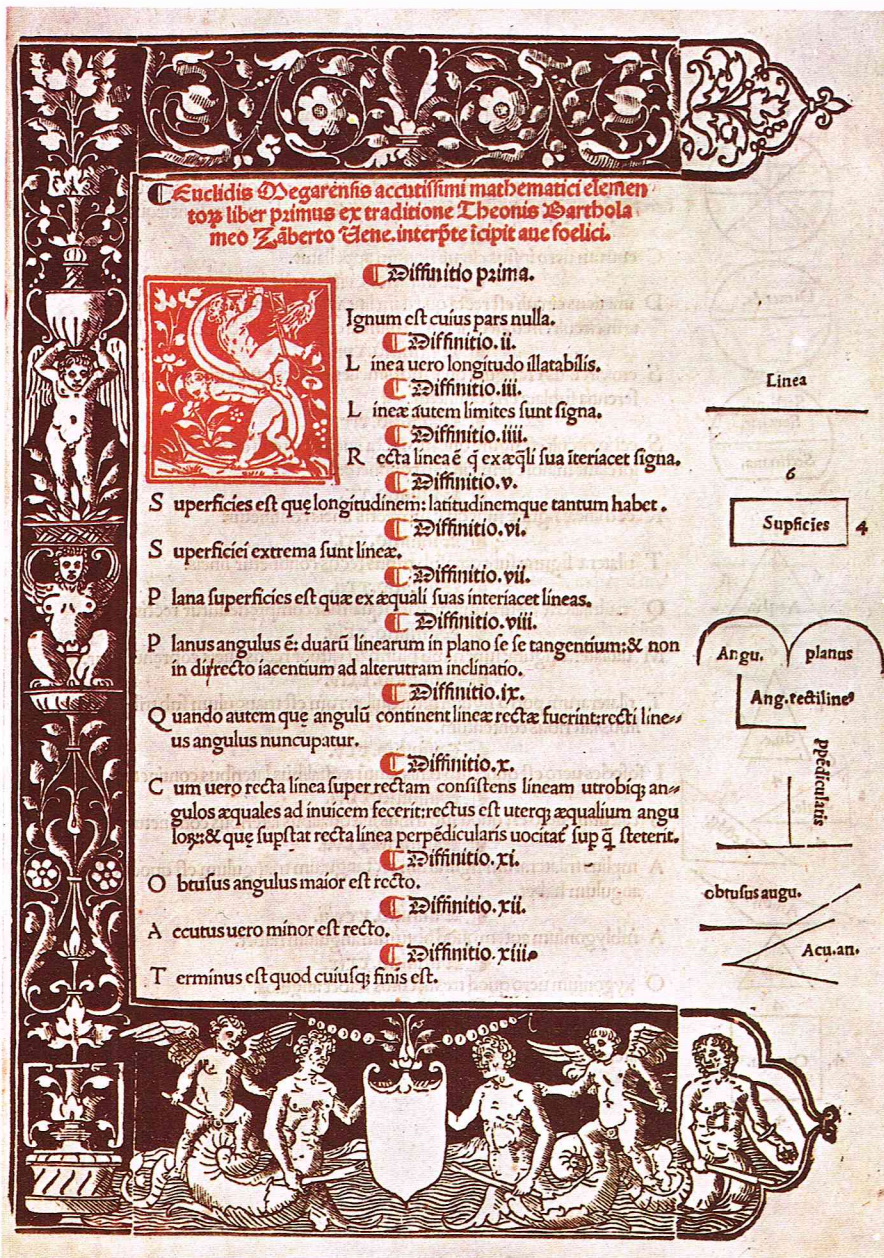 ¶Euclidis Megarensis accutissimi mathematici elemen
toꝝ liber primus ex traditione Theonis Barthola
meo Zāberto Uene. interp̄te īcipit aue foelici.
¶Diffinitio prima.
SIgnum est cuius pars nulla.
¶Diffinitio.ii.
L inea uero longitudo illatabilis.
¶Diffinitio.iii.
L ineæ autem limites sunt signa.
¶Diffinitio.iiii.
R ecta linea ē q̄ ex æq̄li sua īteriacet signa.
¶Diffinitio.v.
S uperficies est quę longitudinem: latitudinemque tantum habet.
¶Diffinitio.vi.
S uperficiei extrema sunt lineæ.
¶Diffinitio.vii.
P lana superficies est quæ ex æquali suas interiacet lineas.
¶Diffinitio.viii.
P lanus angulus ē: duarū linearum in plano se se tangentium: & non
in directo iacentium ad alterutram inclinatio.
¶Diffinitio.ix.
Q uando autem quę angulū continent lineæ rectæ fuerint: recti line-
us angulus nuncupatur.
¶Diffinitio.x.
C um uero recta linea super rectam consistens lineam utrobiqꝫ an-
gulos æquales ad inuicem fecerit: rectus est uterqꝫ æqualium angu
loꝝ: & quę supstat recta linea perpēdicularis uocitat᷑ sup q̄ steterit.
¶Diffinitio.xi.
O btusus angulus maior est recto.
¶Diffinitio.xii.
A ccutus uero minor est recto.
¶Diffinitio.xiii.
T erminus est quod cuiusqꝫ finis est.
Linea
6
Supficies 4
Angu. planus
Ang.rectilineꝰ
Ppēdicularis
obtusus augu.
Acu.an.